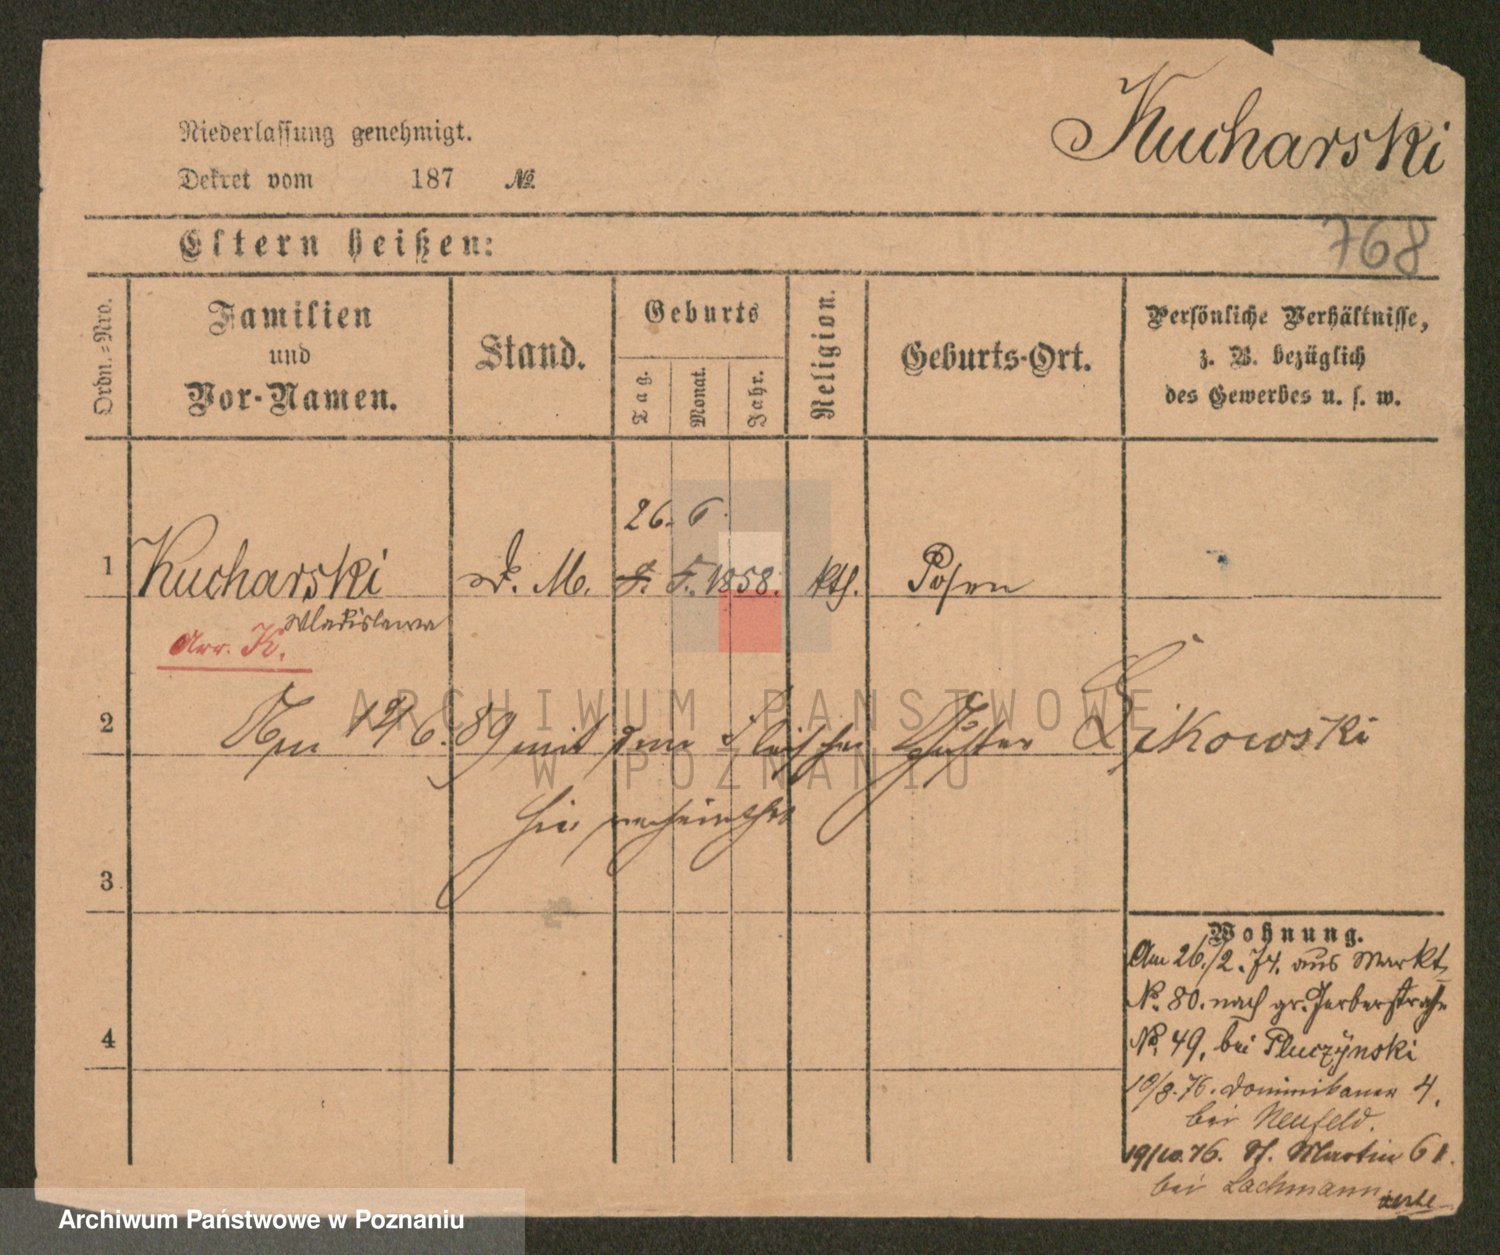 Kucharski
Niederlassung genehmigt.
Dekret vom 187 №
768
Eltern heißen:
Ordn.-Nro.
Familien
und
Vor-Namen.
Stand.
Geburts
Tag.
Monat.
Jahr.
Religion.
Geburts-Ort.
Persönliche Verhältnisse,
z. B. bezüglich
des Gewerbes u. s. w.
26. 6.
1 Kucharski D. M. 1858. kth. Posen
Wladislawa
Arr. K.
2 Am 6. 89 mit dem Fleischer Gustav Sikowski
hier verheirathet
3
4
Wohnung.
Am 26./2. 74. aus Markt
No. 80. nach gr. Gerberstraße
No. 49, bei Pluczynski
10/3. 76. Dominikaner 4.
bei Neufeld.
19/10. 76. St. Martin 61.
bei Lachmann
ARCHIWUM PAŃSTWOWE
W POZNANIU
Archiwum Państwowe w Poznaniu